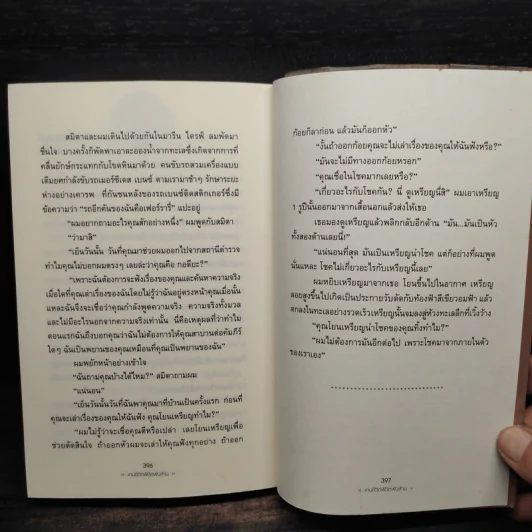 สมิตาและผมเดินไปด้วยกันในมารีน ไดรฟ์ ลมพัดมา
ชื่นใจ บางครั้งก็พัดพาเอาละอองน้ำจากทะเลซึ่งเกิดจากการที่
คลื่นยักษ์กระแทกกับโขดหินมาด้วย คนขับรถสวมเครื่องแบบ
เต็มยศกำลังขับรถเมอร์ซีเดส เบนซ์ ตามเรามาช้าๆ รักษาระยะ
ห่างอย่างเคารพ ที่กันชนหลังของรถเบนซ์ติดสติกเกอร์ซึ่งมี
ข้อความว่า “รถอีกคันของฉันคือเฟอร์รารี่” แปะอยู่
“ผมอยากถามอะไรคุณสักอย่างหนึ่ง” ผมพูดกับสมิตา
“ว่ามาสิ”
“เย็นวันนั้น วันที่คุณมาช่วยผมออกไปจากสถานีตำรวจ
ทำไมคุณไม่บอกผมตรงๆ เลยล่ะว่าคุณคือ กุดิยะ?”
“เพราะฉันต้องการจะฟังเรื่องของคุณและค้นหาความจริง
เมื่อใดที่คุณเล่าเรื่องของฉันโดยไม่รู้ว่าฉันอยู่ตรงหน้าคุณเมื่อนั้น
แหละฉันจึงจะเชื่อว่าคุณกำลังพูดความจริง ความจริงทั้งมวล
และไม่มีอะไรนอกจากความจริงเท่านั้น นี่คือเหตุผลที่ว่าทำไม
ตอนแรกฉันถึงบอกคุณว่าฉันไม่ต้องการให้คุณสาบานต่อคัมภีร์
ใดๆ ฉันเป็นพยานของคุณเหมือนที่คุณเป็นพยานของฉัน”
ผมพยักหน้าอย่างเข้าใจ
“ฉันถามคุณบ้างได้ไหม?” สมิตาถามผม
“แน่นอน”
“เย็นวันนั้นวันที่ฉันพาคุณมาที่บ้านเป็นครั้งแรก ก่อนที่
คุณจะเล่าเรื่องของคุณให้ฉันฟัง คุณโยนเหรียญทำไม?”
“ผมไม่รู้ว่าจะเชื่อคุณดีหรือเปล่า เลยโยนเหรียญเพื่อ
ช่วยตัดสินใจ ถ้าออกหัวผมจะเล่าให้คุณฟังทุกอย่าง ถ้าออก
396
ก้อยก็ลาก่อน แล้วมันก็ออกหัว”
“งั้นถ้าออกก้อยคุณจะไม่เล่าเรื่องของคุณให้ฉันฟังหรือ?”
“มันจะไม่มีทางออกก้อยหรอก”
“คุณเชื่อในโชคมากเลยหรือ?”
“เกี่ยวอะไรกับโชคกัน? นี่ ดูเหรียญนี่สิ” ผมเอาเหรียญ
1 รูปีนั้นออกมาจากเสื้อนอกแล้วส่งให้เธอ
เธอมองดูเหรียญแล้วพลิกกลับอีกด้าน “มัน...มันเป็นหัว
ทั้งสองด้านเลยนี่!”
“แน่นอนที่สุด มันเป็นเหรียญนำโชค แต่ก็อย่างที่ผมพูด
นั่นแหละ โชคไม่เกี่ยวอะไรกับเหรียญนี่เลย”
ผมหยิบเหรียญมาจากเธอ โยนขึ้นไปในอากาศ เหรียญ
ลอยสูงขึ้นไปเกิดเป็นประกายวับตัดกับท้องฟ้าสีเขียวอมฟ้า แล้ว
ตกลงในทะเลอย่างรวดเร็วเหรียญนั้นจมลงสู่ห้วงทะเลลึกที่เวิ้งว้าง
“คุณโยนเหรียญนำโชคของคุณทิ้งทำไม?”
“ผมไม่ต้องการมันอีกต่อไป เพราะโชคมาจากภายในตัว
ของเราเอง”
397